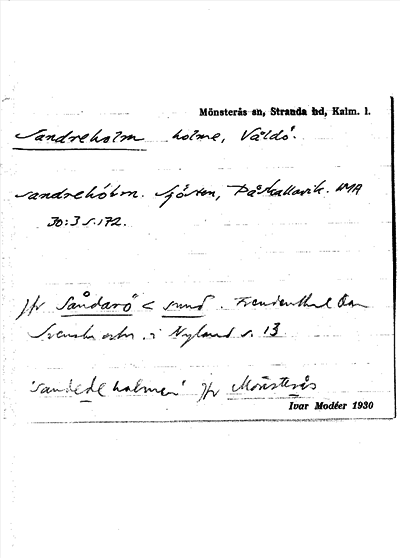 Mönsterås sn, Stranda hd, Kalm. l.
Sandreholm holme, Våldö.
sandrehólm. Sjöten, Påskallavik. WMA
30:3 s.172.
Jfr Såndarö < sund. Freudenthal Om
Svenska ortn. i Nyland s. 13
'sandede holmen' Jfr Mönsterås
Ivar Modéer 1930